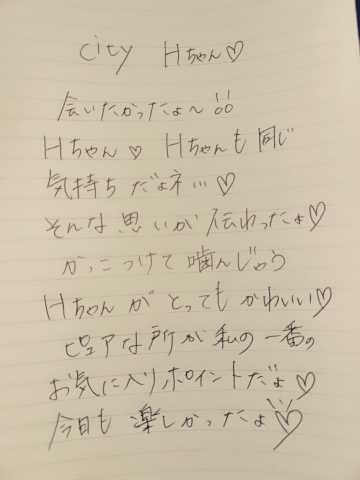 city Hちゃん♡
会いたかったょ〜!!
Hちゃん♡ Hちゃんも同じ
気持ちだょネ…♡
そんな思いが伝わったょ♡
かっこつけて噛んじゃう
Hちゃんがとってもかわいい♡
ピュアな所が私の一番の
お気に入りポイントだょ♡
今日も楽しかったょ♡